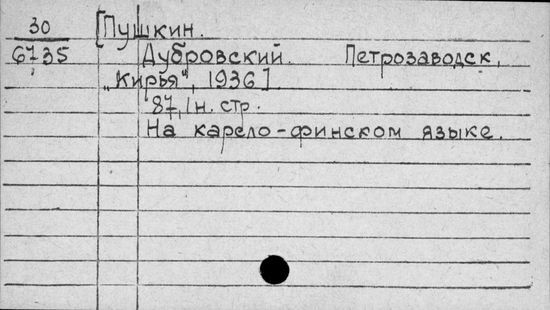 30 [Пушкин.
6735 Дубровский. Петрозаводск,
„Кирья", 1936]
87, 1 н. стр.
На карело-финском языке.